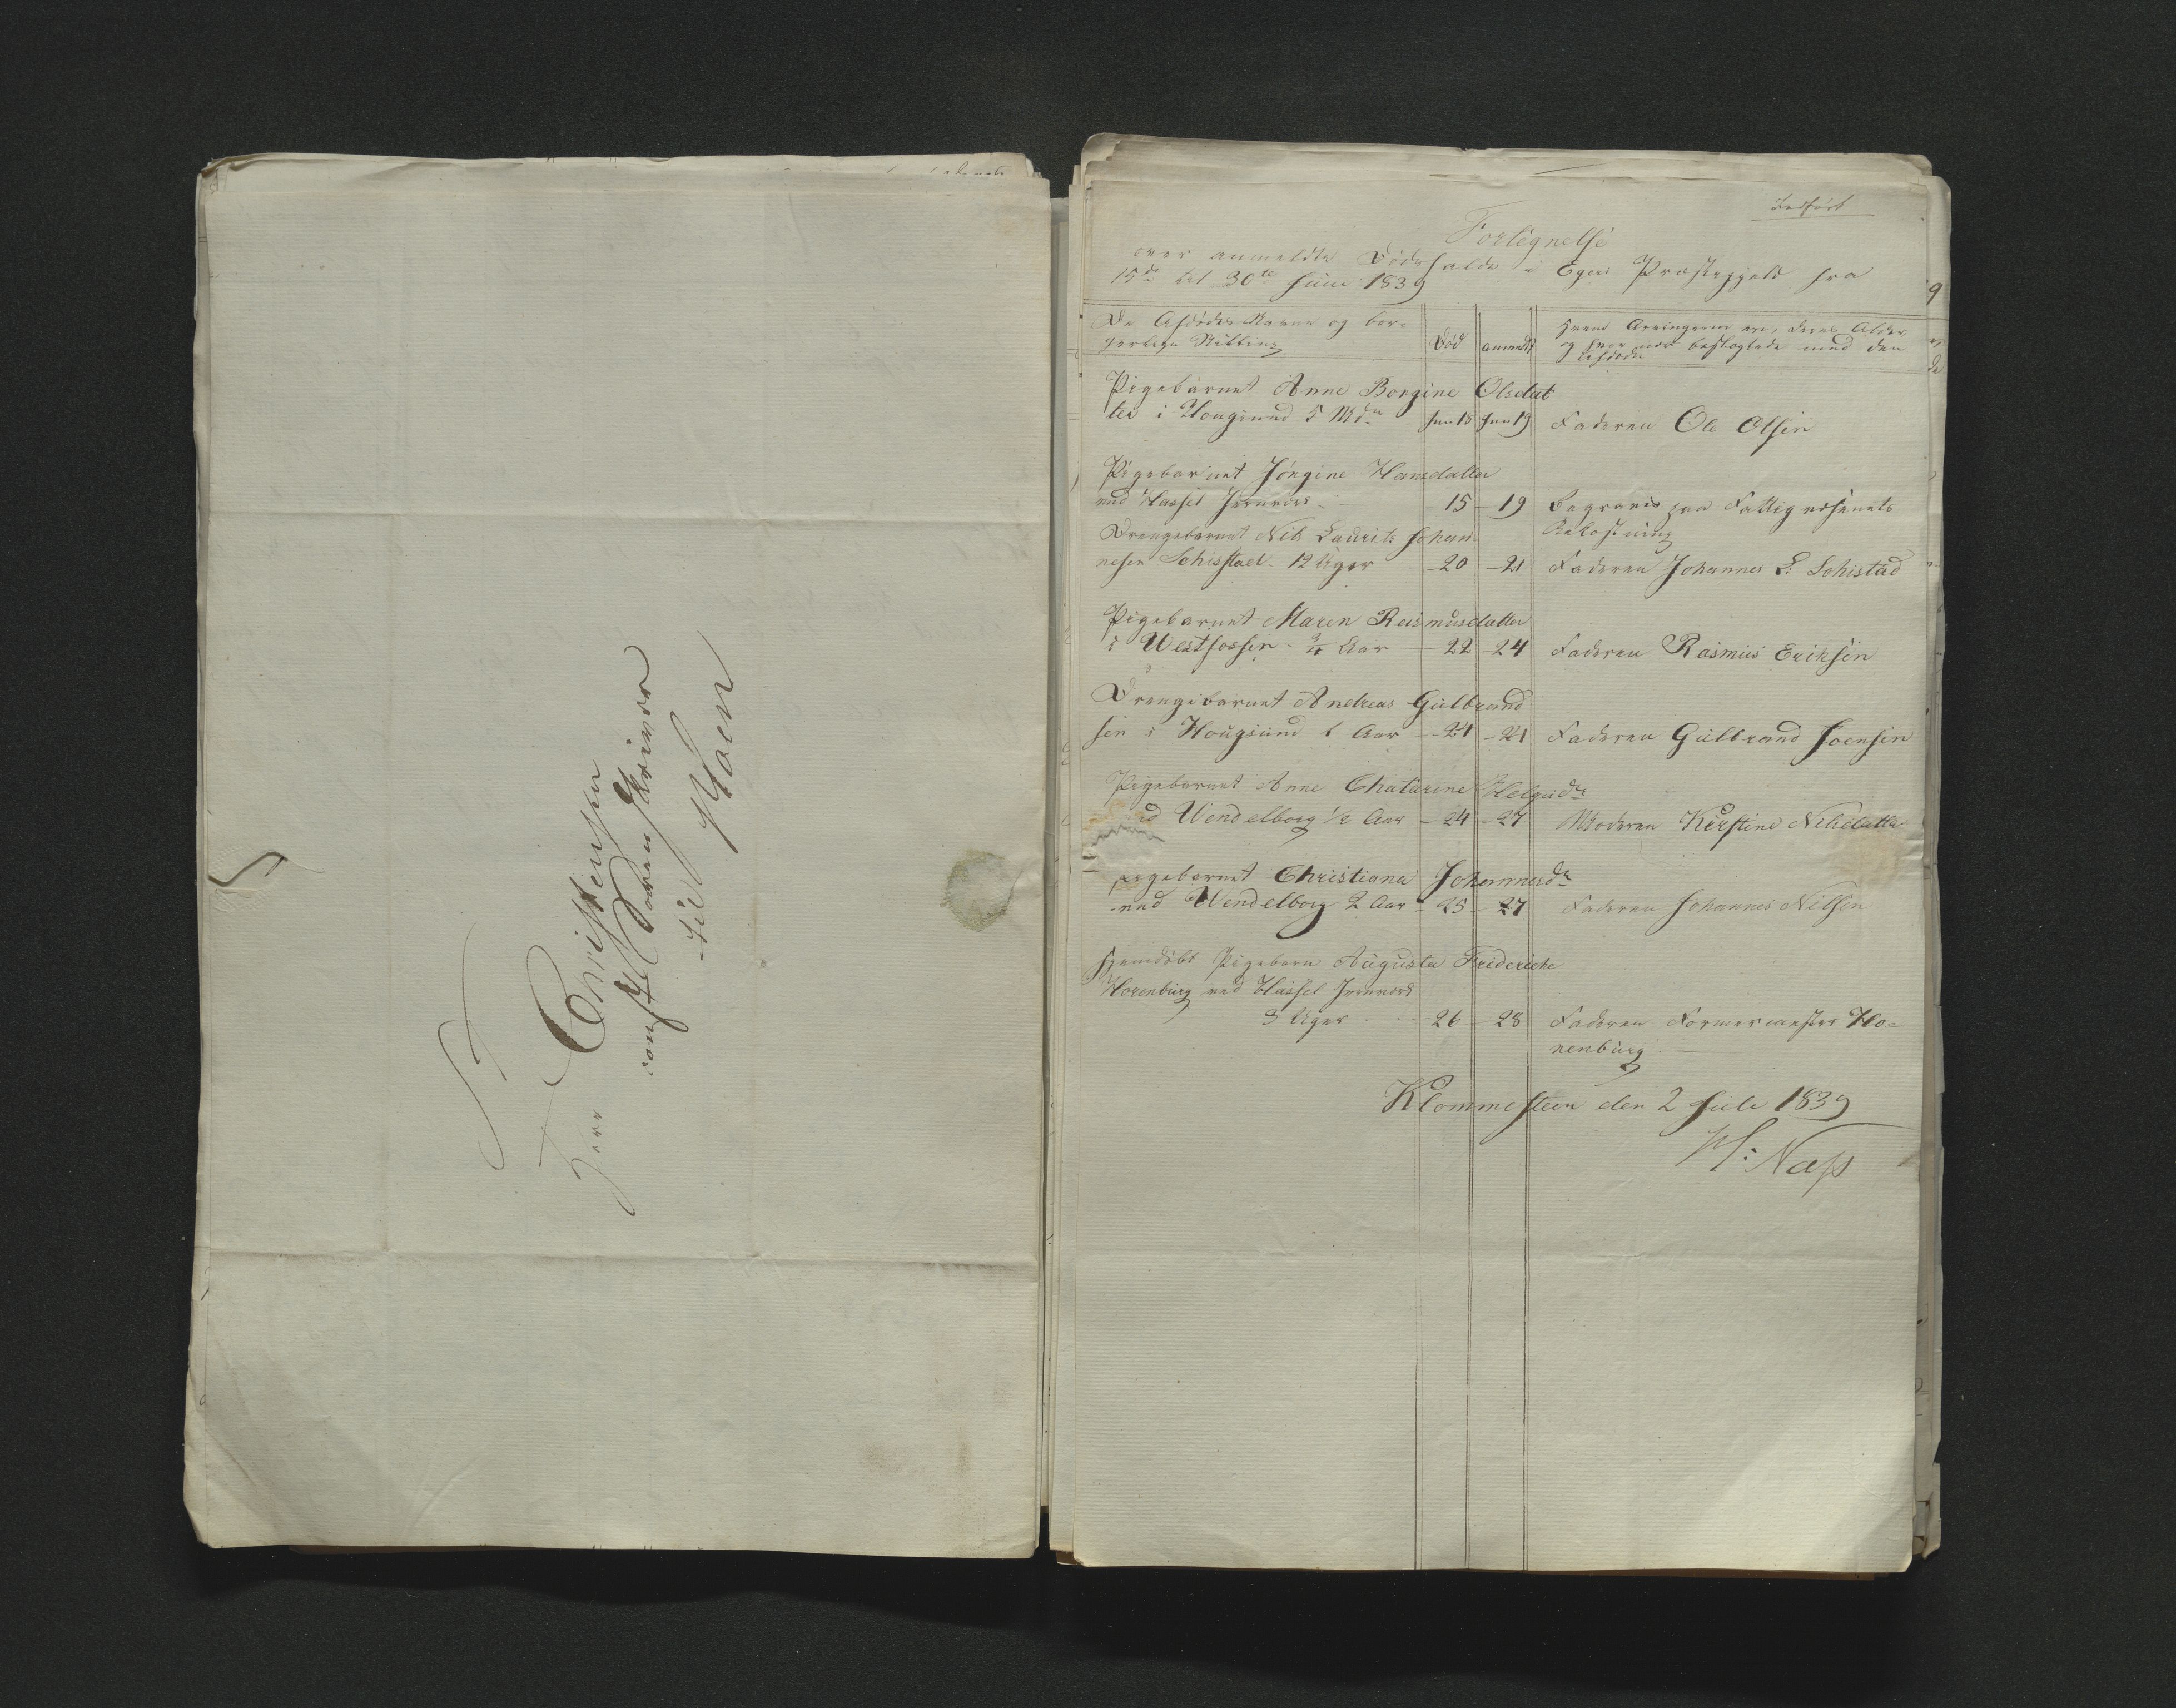 S T
Herr Christensen
const: Sorenskriver
til
Hoen
Indført
Fortegnelse
over anmeldte Dødsfalde i Egers Præstegjeld fra
15de til 30te Juni 1839
De Afdødes Navne og bor-
gerlige Stilling
Død
anmeldt
Hvem Arvingerne ere, deres Alder
og hvor nær beslægtede med den
Afdøde
Pigebarnet Anne Borgine Olsdat
ter i Hougsund 5 Mdr
Juni 18
Juni 19
Faderen Ole Olsen
Pigebarnet Jörgine Hansdatter
ved Hassel Jernværk
15 - 19
Begraves paa Fattigvæsenets
Bekostning
Drengebarnet Nils Laurits Johan-
nesen Schistad - 12 Uger
- 20 - 21
Faderen Johannes L. Schistad
Pigebarnet Maren Rasmusdatter
i Westfossen - 3/4 Aar
- 22 - 24
Faderen Rasmus Eriksen
Drengebarnet Andreas Gulbrand
sen i Hougsund 6 Aar
- 21 - 21
Faderen Gulbrand Joensen
Pigebarnet Anne Chatarine Helgesdr
ved Wendelborg 1/2 Aar
- 24 - 27
Moderen Kirstine Nilsdatter
Pigebarnet Christiana Johannesdr
ved Wendelborg 2 Aar
- 25 - 27
Faderen Johannes Nilsen
Hjemdöbt Pigebarn Augusta Frideriche
Horenburg ved Hassel Jernværk
3 Uger
- 26 - 28
Faderen Formermester Ho-
nenburg
Klommesteen den 2 Juli 1839
H: Næss